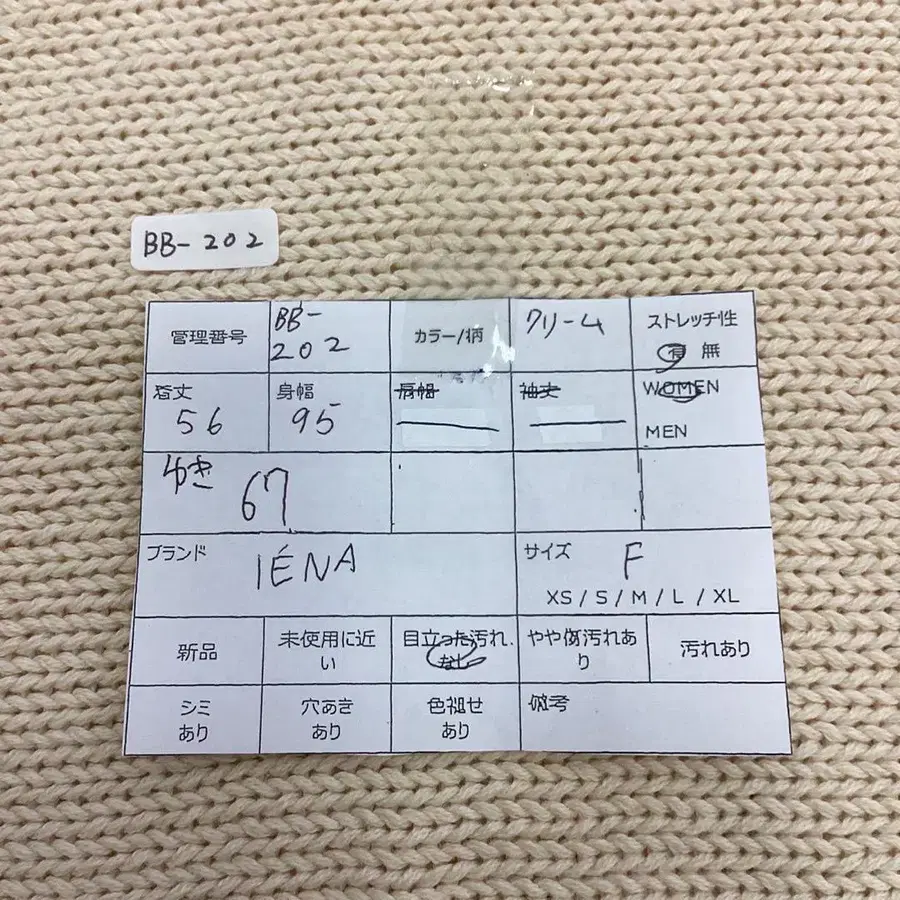 BB-202
管理番号
BB-
202
カラー/柄
クリーム
ストレッチ性
有 無
着丈
56
身幅
95
肩幅
袖丈
WOMEN
MEN
ゆき
67
ブランド
IÉNA
サイズ
F
XS / S / M / L / XL
新品
未使用に近
い
目立った汚れ
なし
やや傷汚れあ
り
汚れあり
シミ
あり
穴あき
あり
色褪せ
あり
備考